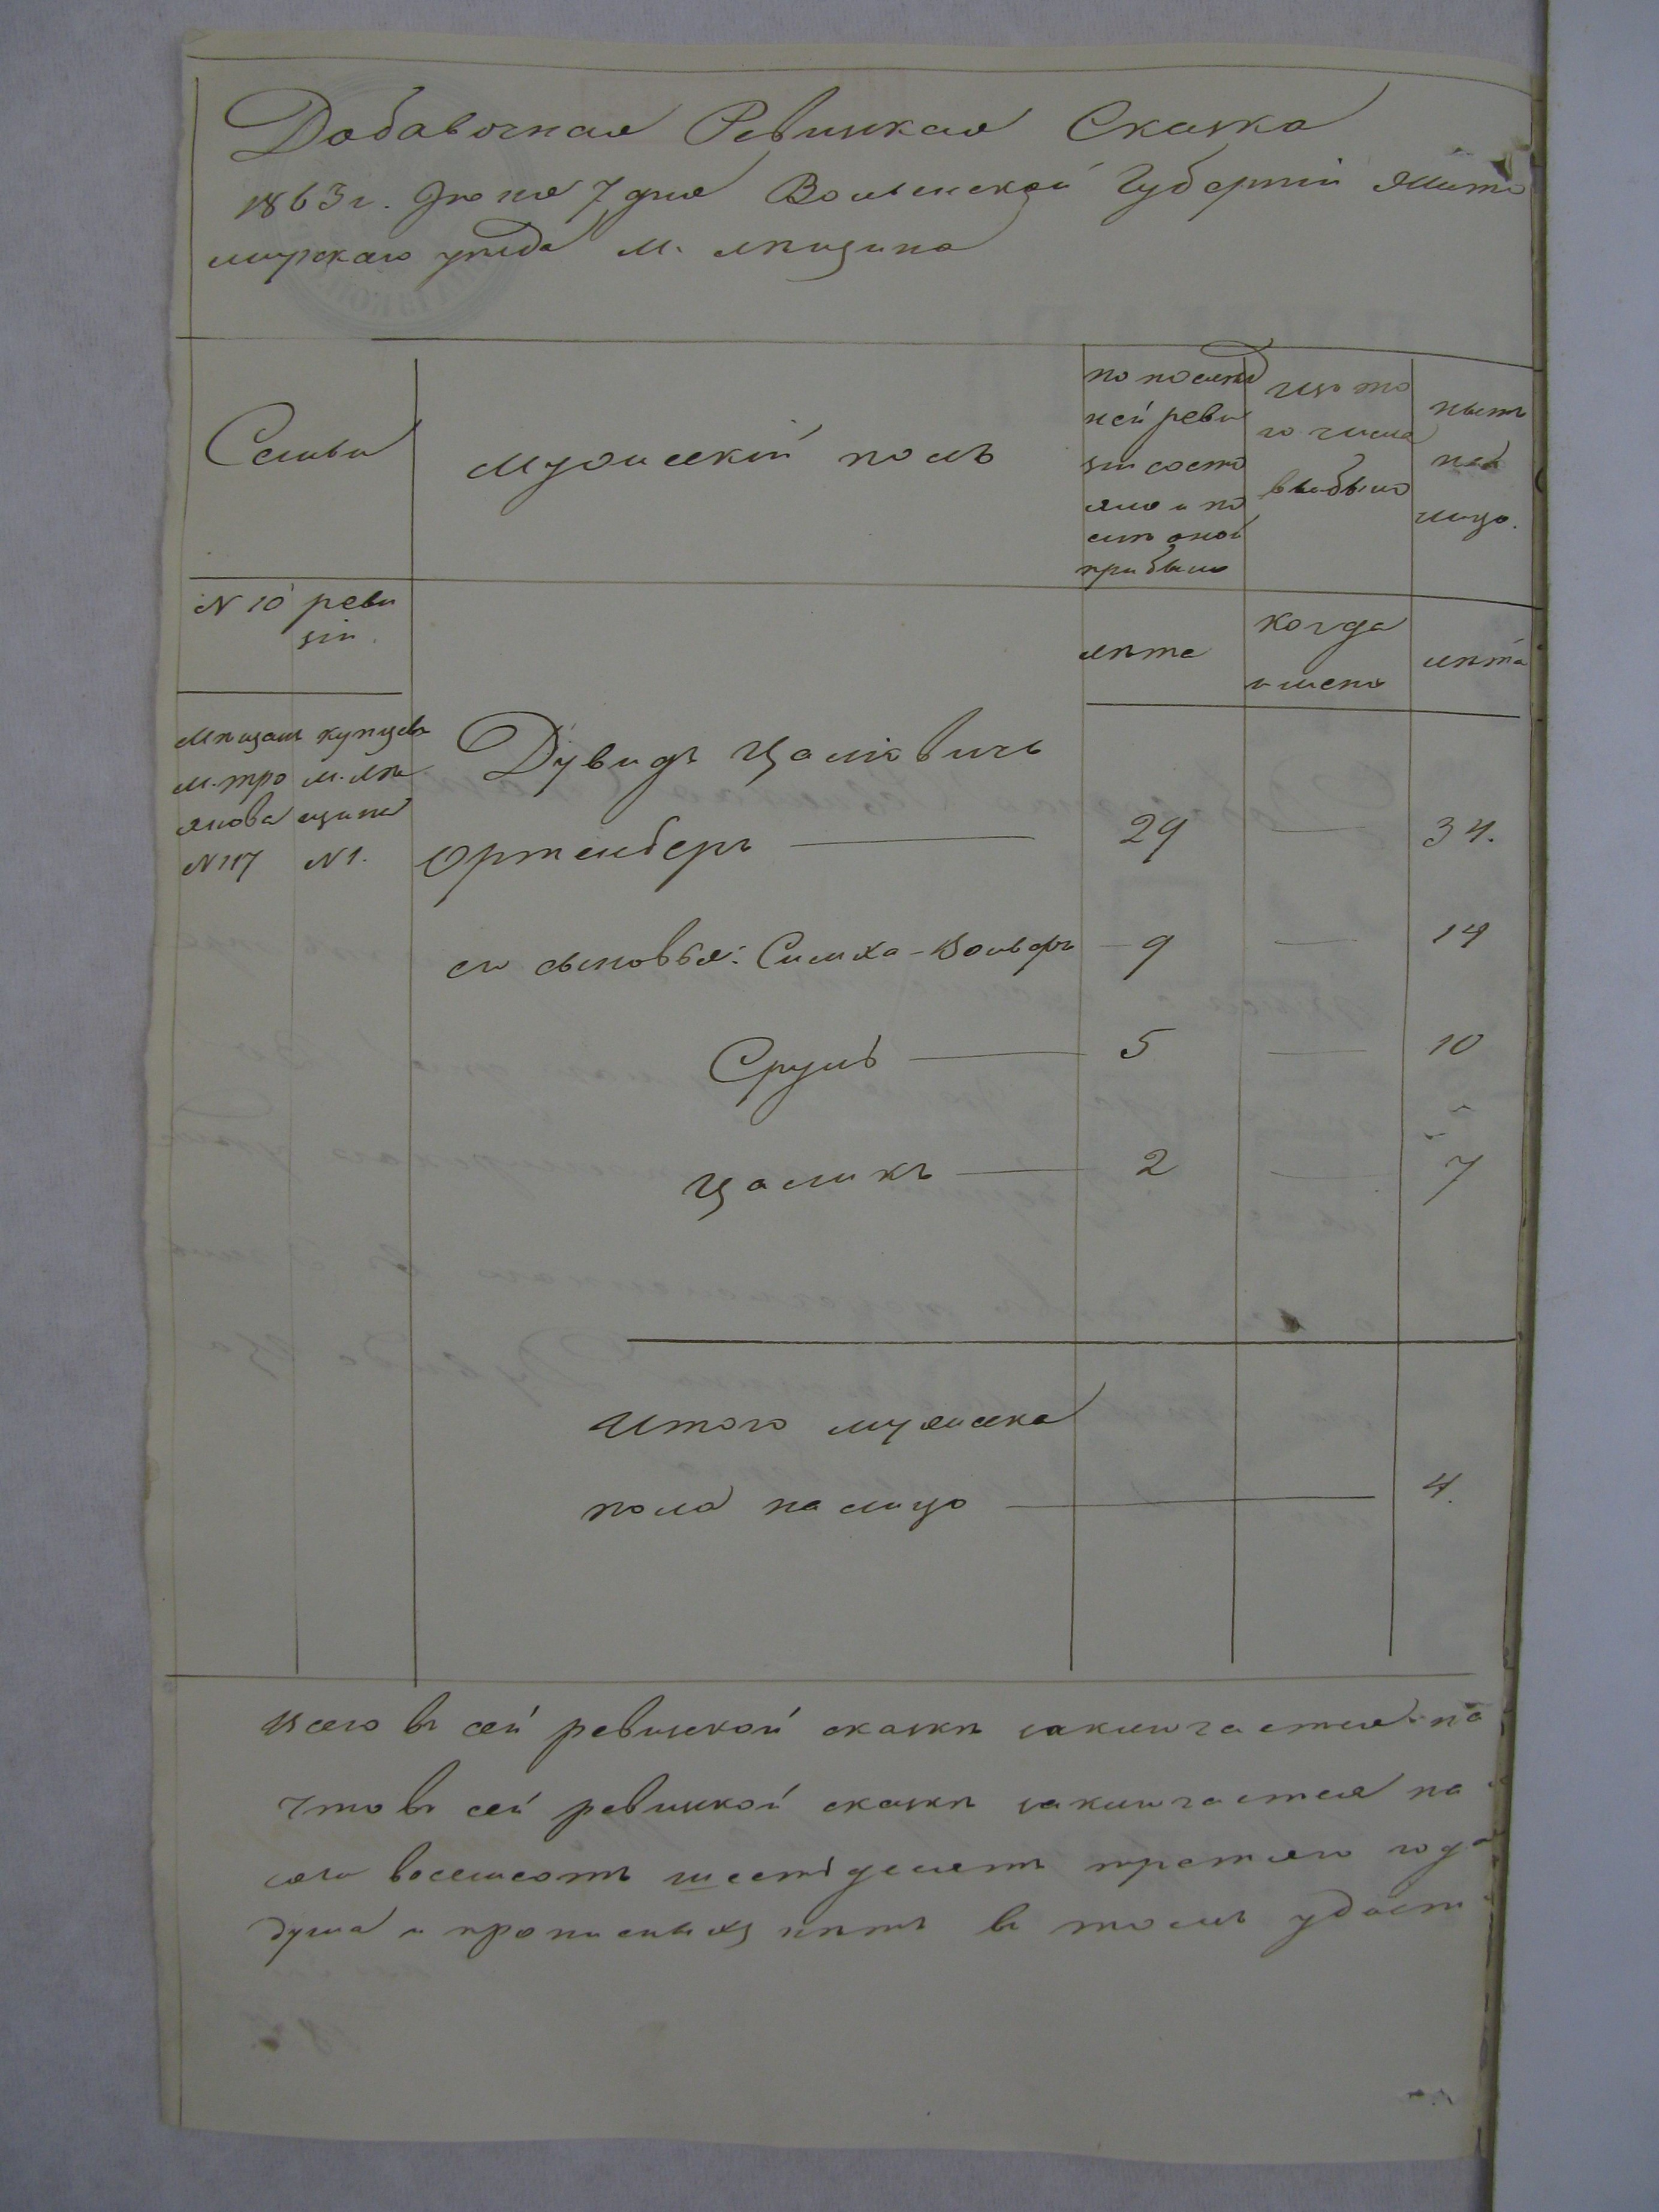 Добавочная Ревизская Сказка
1863 г. Июня 7 дня Волынской Губерніи Жито
мирскаго уѣзда м. Лѣщина
Семьи
Мужескій полъ
по послѣд
ней реви
зіи состо
яло и по
слѣ оной
прибыло
изъ то
го числа
выбыло
нынѣ
на
лицо.
N 10 реви
зіи
лѣта
когда
именно
лѣта
Мѣщан
м. Тро
янова
N 117
купцевъ
м. Лѣ
щина
N 1.
Дувидъ Цалковичъ
Ортенберъ — 29 — 34.
его сыновья: Симха-Вольфъ — 9 — 14
Сруль — 5 — 10
Цаликъ — 2 — 7
Итого мужеска
пола на лицо — 4.
Всего въ сей ревизской сказкѣ заключается на
Что въ сей ревизкой сказкѣ заключается на
восемсотъ шестдесятъ третяго года
душа и прописныхъ нѣтъ въ томъ удост